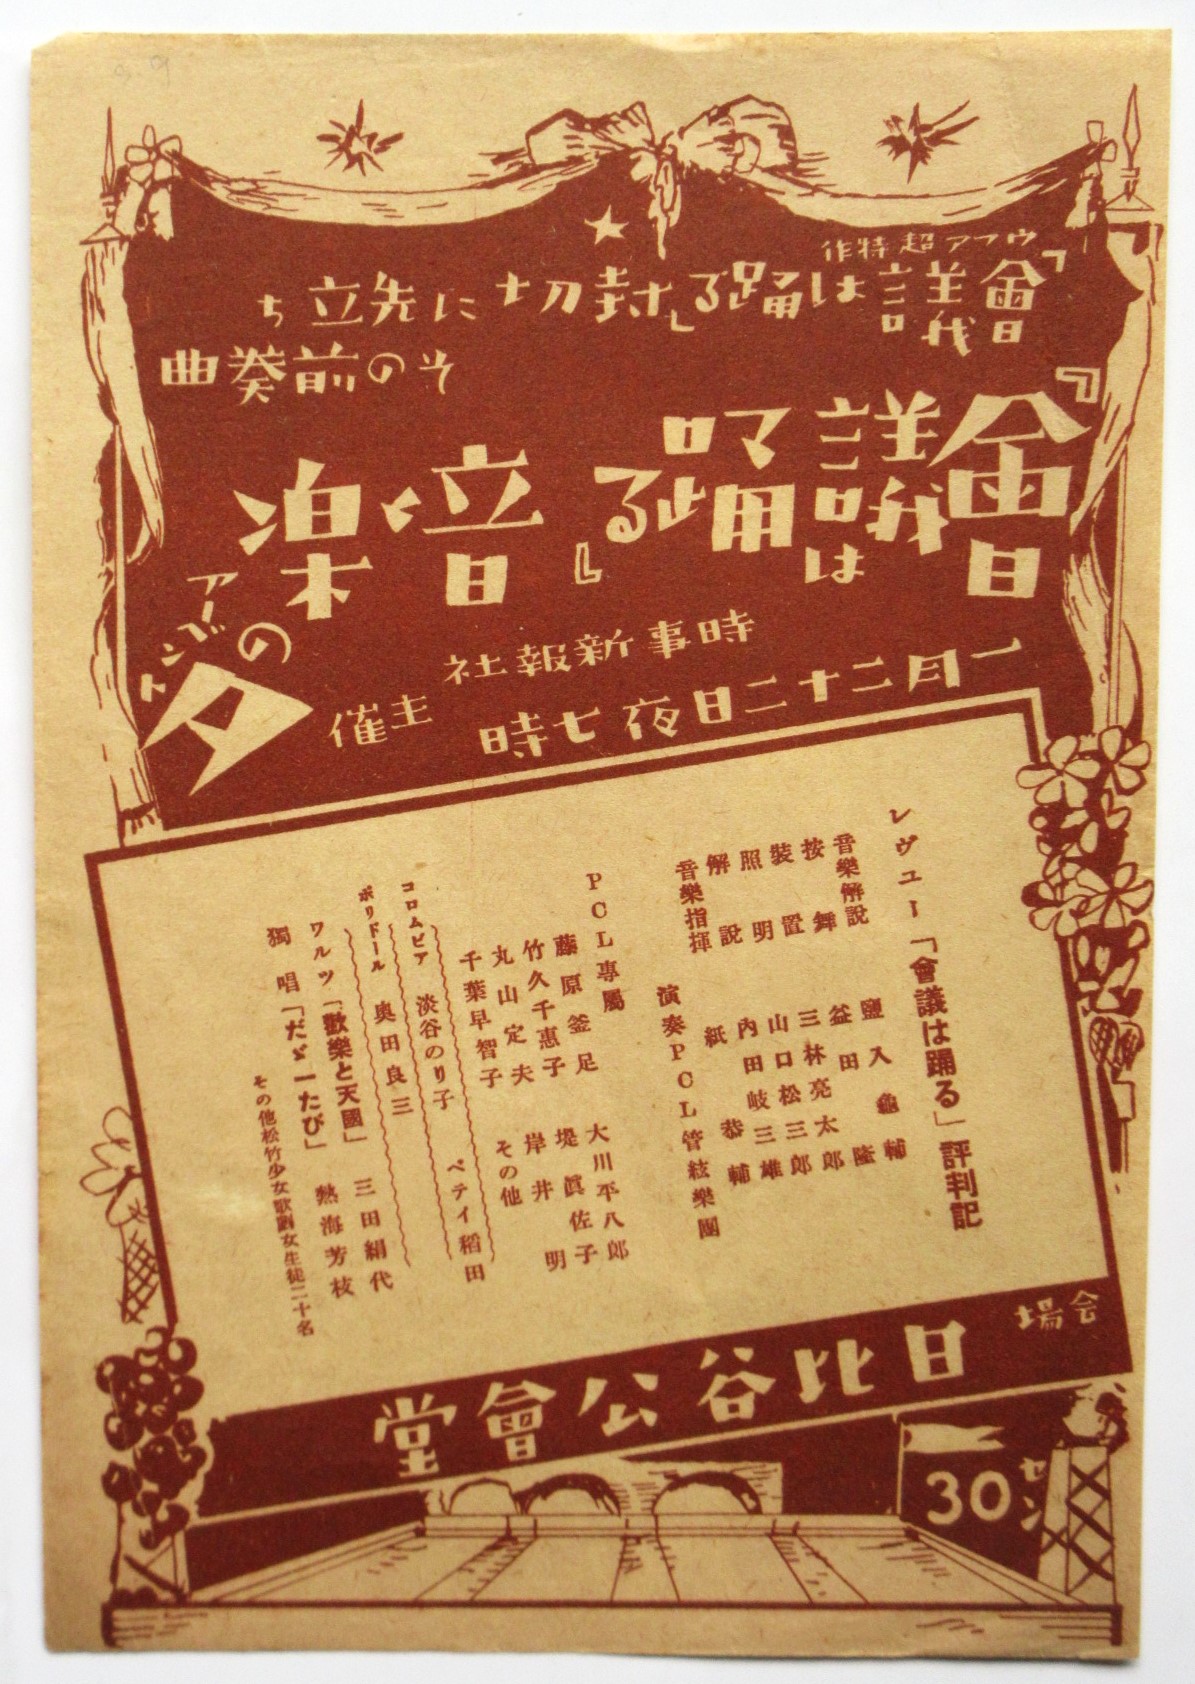 ウフア超特作
「會議は踊る」封切に先立ち
その前奏曲
『會議は踊る』音楽
の夕
アーベント
時事新報社
主催
一月二十二日夜七時
レヴュー「會議は踊る」評判記
音樂解說 鹽入龜輔
按舞 益田隆
裝置 三林亮太郎
照明 山口松三郎
解說 內田岐三雄
音樂指揮 紙恭輔
演奏PCL管絃樂團
PCL專屬
大川平八郎
藤原釜足 堤眞佐子
竹久千惠子 岸井明
丸山定夫 その他
千葉早智子
ベテイ稻田
コロムビア 淡谷のり子
ポリドール 奥田良三
ワルツ「歡樂と天國」 三田絹代
獨唱「だゞ一たび」 熱海芳枝
その他松竹少女歌劇女生徒二十名
会場
日比谷公會堂
30セン